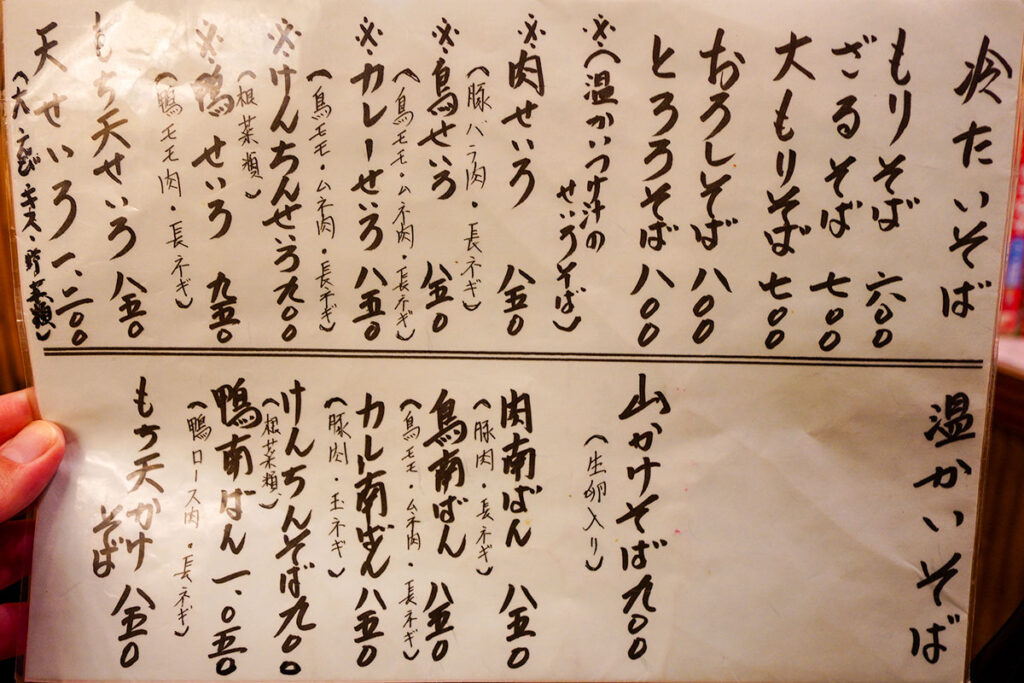 冷たいそば
もりそば 六〇〇
ざるそば 七〇〇
大もりそば 七〇〇
おろしそば 八〇〇
とろろそば 八〇〇
※(温かいつけ汁の
せいろそば)
※肉せいろ 八五〇
(豚バラ肉・長ネギ)
※鳥せいろ 八五〇
(鳥モモ・ムネ肉・長ネギ)
※カレーせいろ 八五〇
(鳥モモ・ムネ肉・長ネギ)
※けんちんせいろ 九〇〇
(根菜類)
※鴨せいろ 九五〇
(鴨モモ肉・長ネギ)
もち天せいろ 八五〇
天せいろ 一、二〇〇
(大エビ・キス・野菜類)
温かいそば
山かけそば 九〇〇
(生卵入り)
肉南ばん 八五〇
(豚肉・長ネギ)
鳥南ばん 八五〇
(鳥モモ・ムネ肉・長ネギ)
カレー南ばん 八五〇
(豚肉・玉ネギ)
けんちんそば 九〇〇
(根菜類)
鴨南ばん 一、〇五〇
(鴨ロース肉・長ネギ)
もち天かけ
そば 八五〇